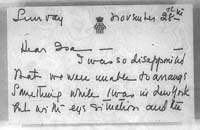 November 28
Dear Ina —
I was so disappointed
that we were unable to arrange
something while I was in New York
but with situation and the